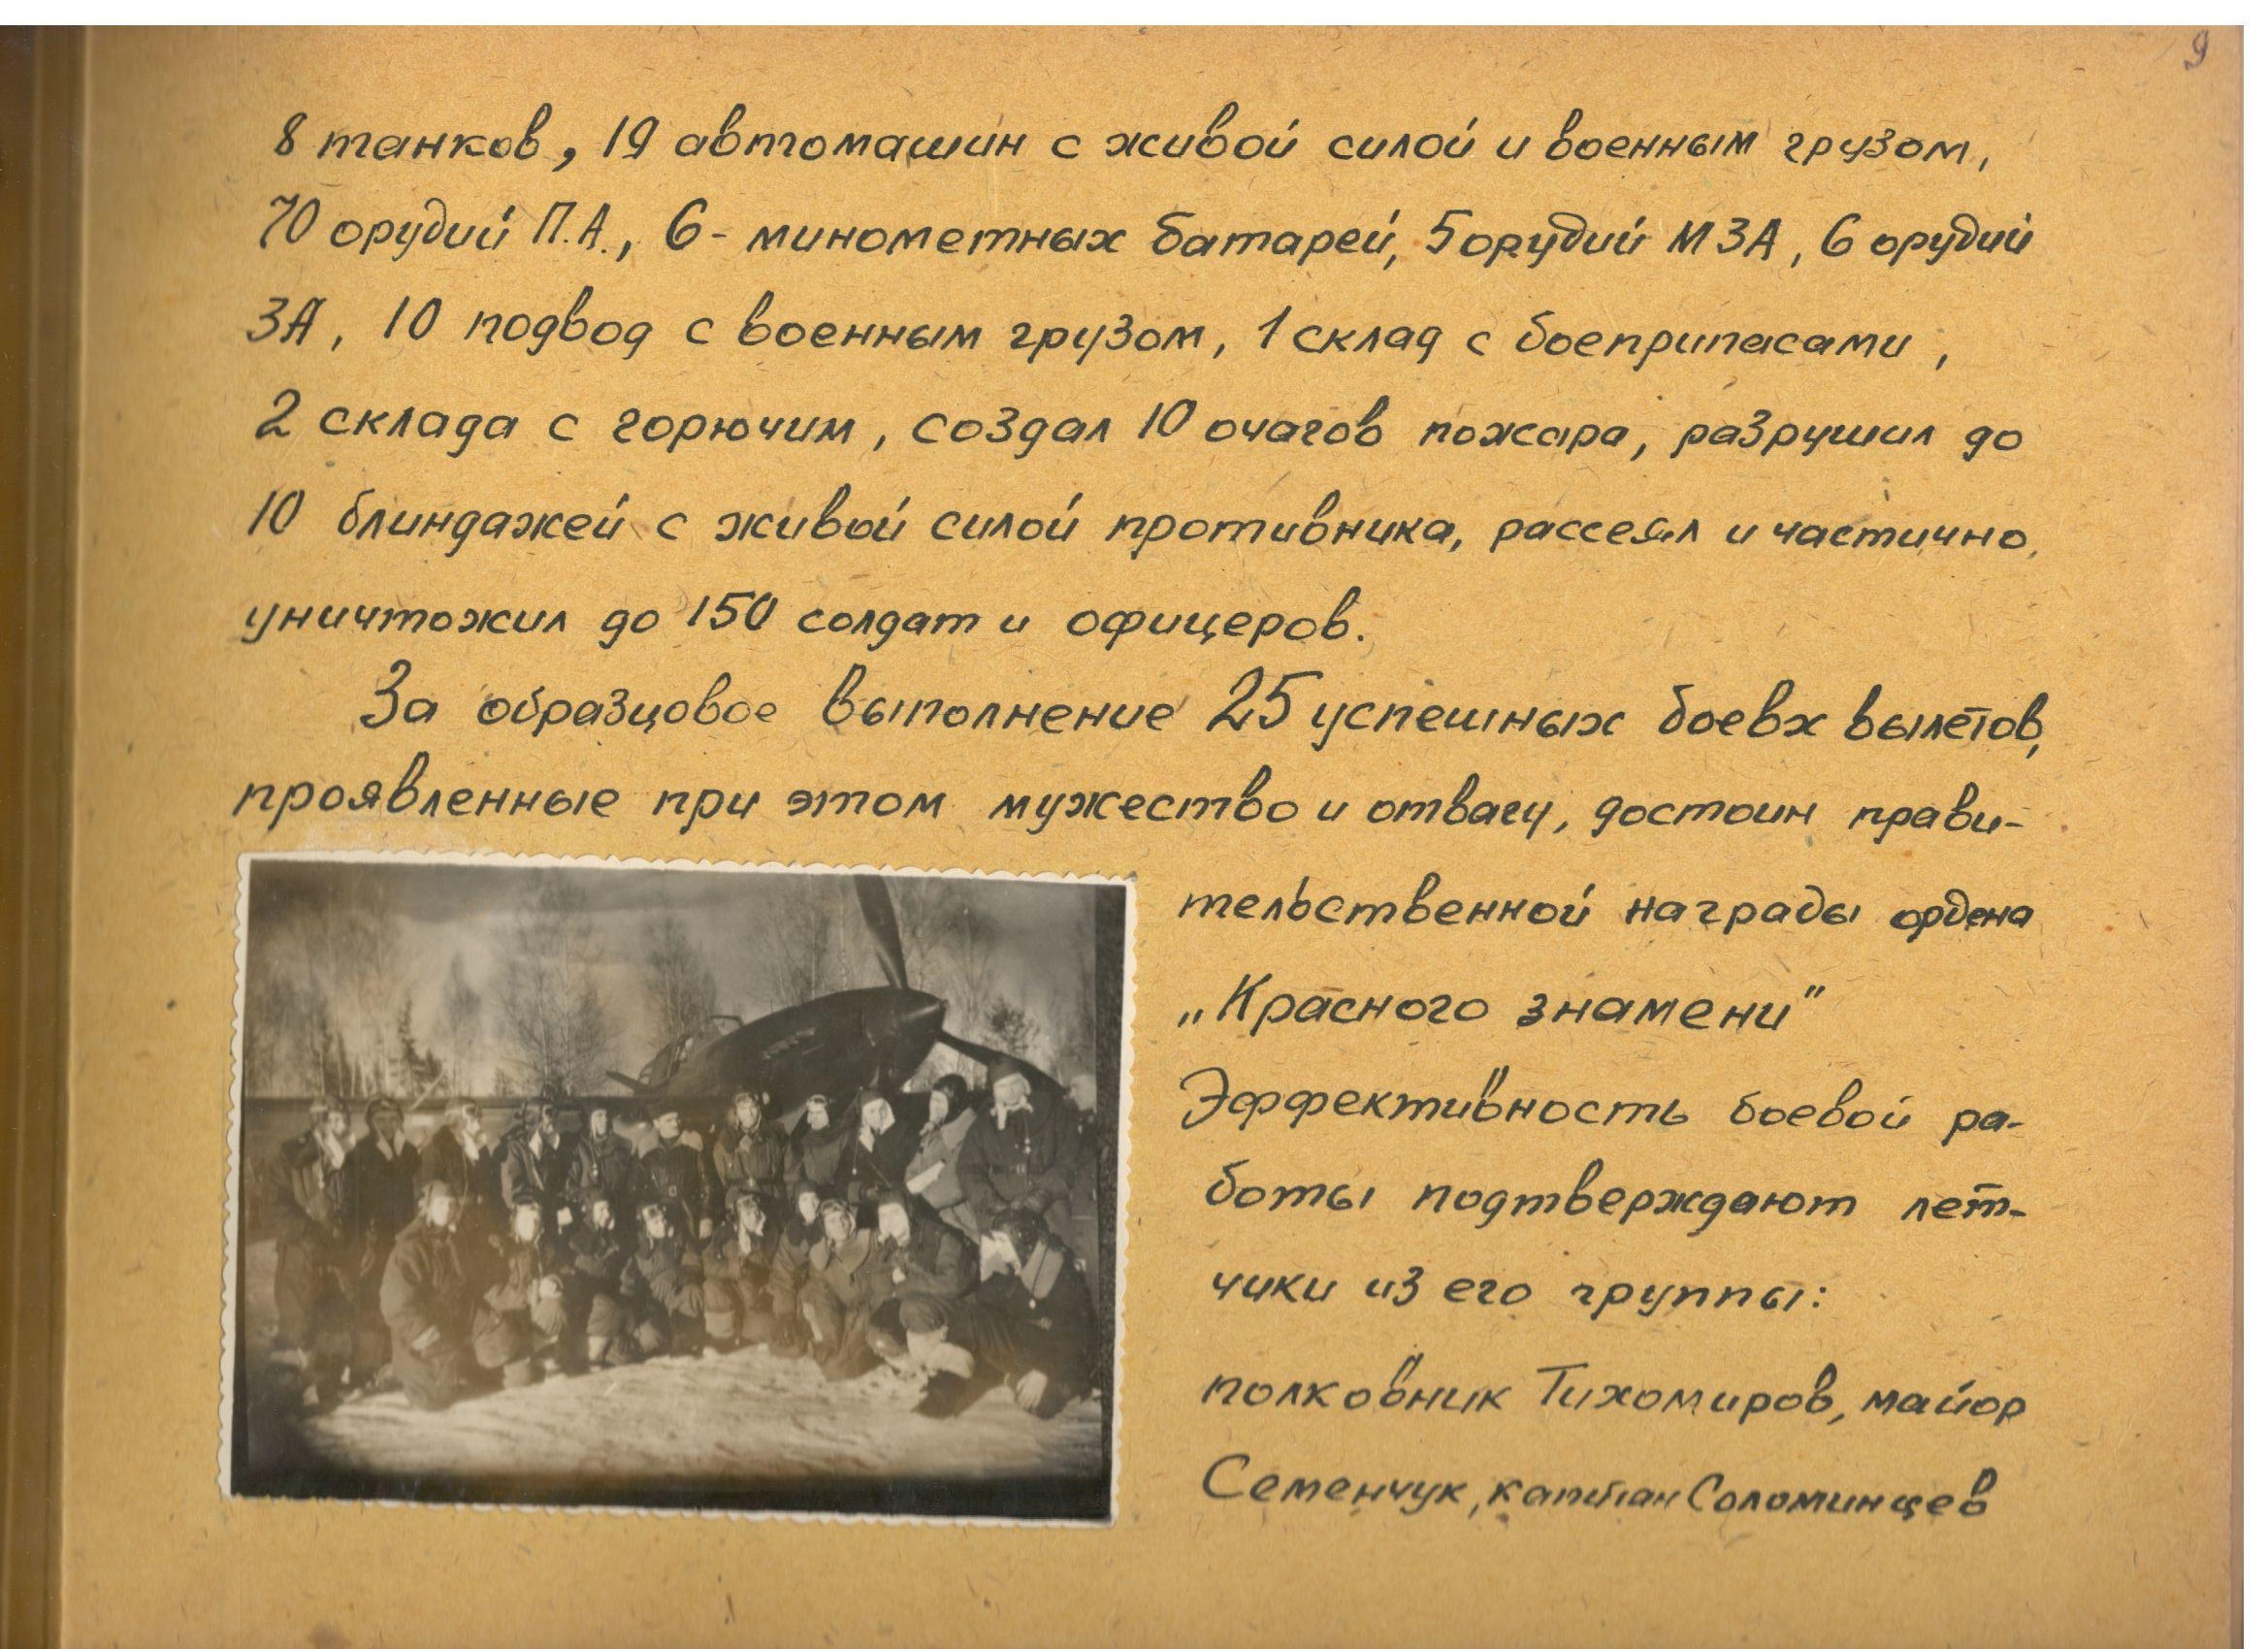 9
8 танков, 19 автомашин с живой силой и военным грузом,
70 орудий П.А., 6- минометных батарей, 5 орудий МЗА, 6 орудий
ЗА, 10 подвод с военным грузом, 1 склад с боеприпасами,
2 склада с горючим, создал 10 очагов пожара, разрушил до
10 блиндажей с живой силой противника, рассеял и частично
уничтожил до 150 солдат и офицеров.
За образцовое выполнение 25 успешных боевх вылетов,
проявленные при этом мужество и отвагу, достоин прави-
тельственной награды ордена
„Красного знамени"
Эффективность боевой ра-
боты подтверждают лет-
чики из его группы:
полковник Тихомиров, майор
Семенчук, капитан Соломинцев